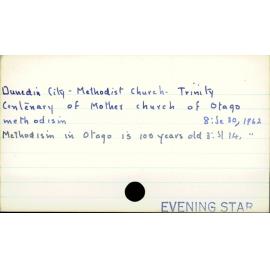 Dunedin City - Methodist Church - Trinity
Centenary of Mother church of Otago
methodism 8: Se 30, 1962
Methodism in Otago is 100 years old 3: Jl 14, "
EVENING STAR